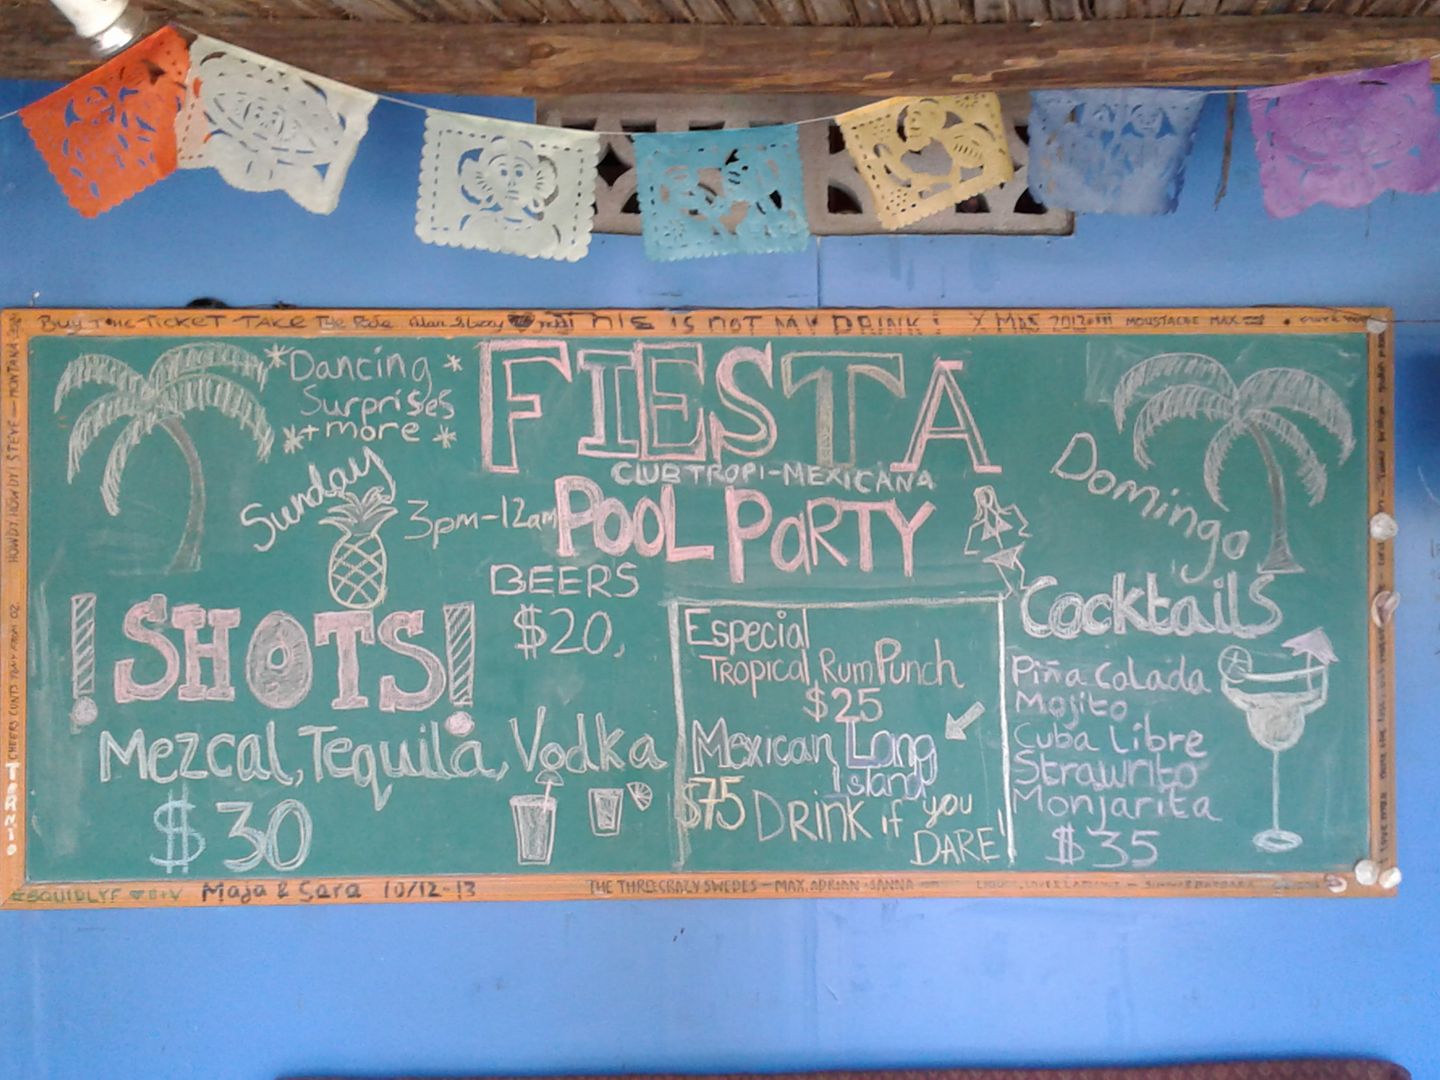 Buy the TICKET TAKE The Ride
THIS IS NOT MY DRINK!
X MAS 2012!!!
MOUSTACHE MAX
HOWDY HOWDY! STEVE - MONTANA
*Dancing *
Surprises
*+ more *
FIESTA
CLUB TROPI-MEXICANA
POOL PARTY
Sunday
3pm-12am
Domingo
BEERS
$20,
¡SHOTS!
Mezcal, Tequila, Vodka
$30
Especial
Tropical Rum Punch
$25
Mexican Long
Island
$75 Drink if you
DARE!
Cocktails
Piña Colada
Mojito
Cuba Libre
Strawrito
Monjarita
$35
Maja & Sara 10/12-13
THE THREE CRAZY SWEDES - MAX, ADRIAN, SANNA